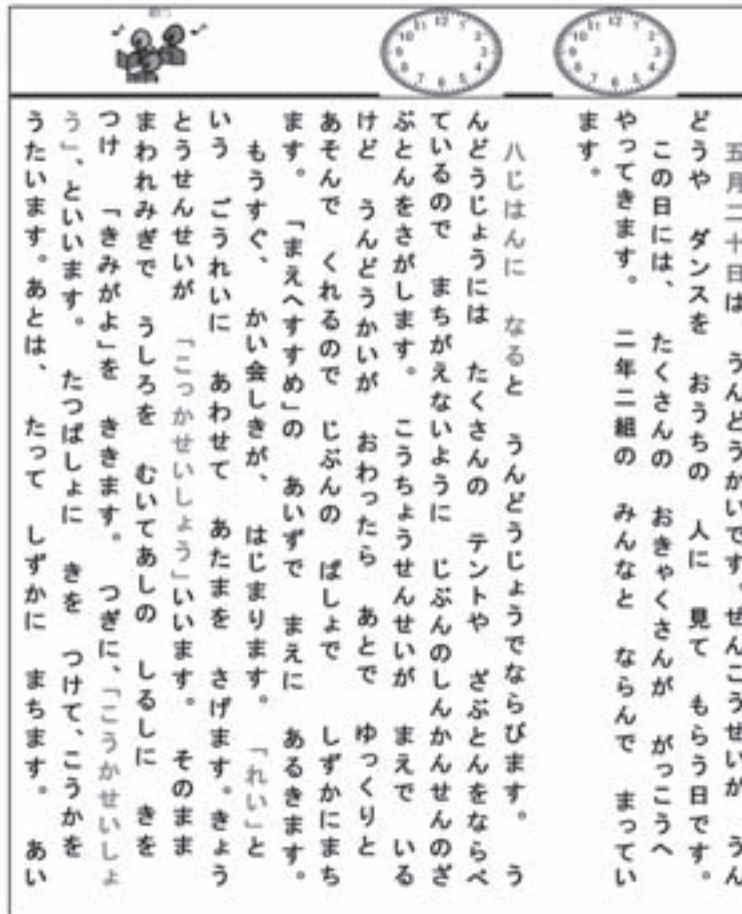 五月二十日は　うんどうかいです。ぜんこうせいが　うん
どうや　ダンスを　おうちの　人に　見て　もらう日です。
この日には、　たくさんの　おきゃくさんが　がっこうへ
やってきます。　二年二組の　みんなと　ならんで　まってい
ます。
八じはんに　なると　うんどうじょうでならびます。　う
んどうじょうには　たくさんの　テントや　ざぶとんをならべ
ているので　まちがえないように　じぶんのしんかんせんのざ
ぶとんをさがします。　こうちょうせんせいが　まえで　いる
けど　うんどうかいが　おわったら　あとで　ゆっくりと
あそんで　くれるので　じぶんの　ばしょで　しずかにまち
ます。　「まえへすすめ」の　あいずで　まえに　あるきます。
もうすぐ、　かい会しきが、　はじまります。　「れい」と
いう　ごうれいに　あわせて　あたまを　さげます。きょう
とうせんせいが　「こっかせいしょう」いいます。　そのまま
まわれみぎで　うしろを　むいてあしの　しるしに　きを
つけ　「きみがよ」を　ききます。　つぎに、「こうかせいしょ
う」、といいます。　たつばしょに　きを　つけて、こうかを
うたいます。あとは、　たって　しずかに　まちます。　あい
12
1
2
3
4
5
6
7
8
9
10
11
12
1
2
3
4
5
6
7
8
9
10
11